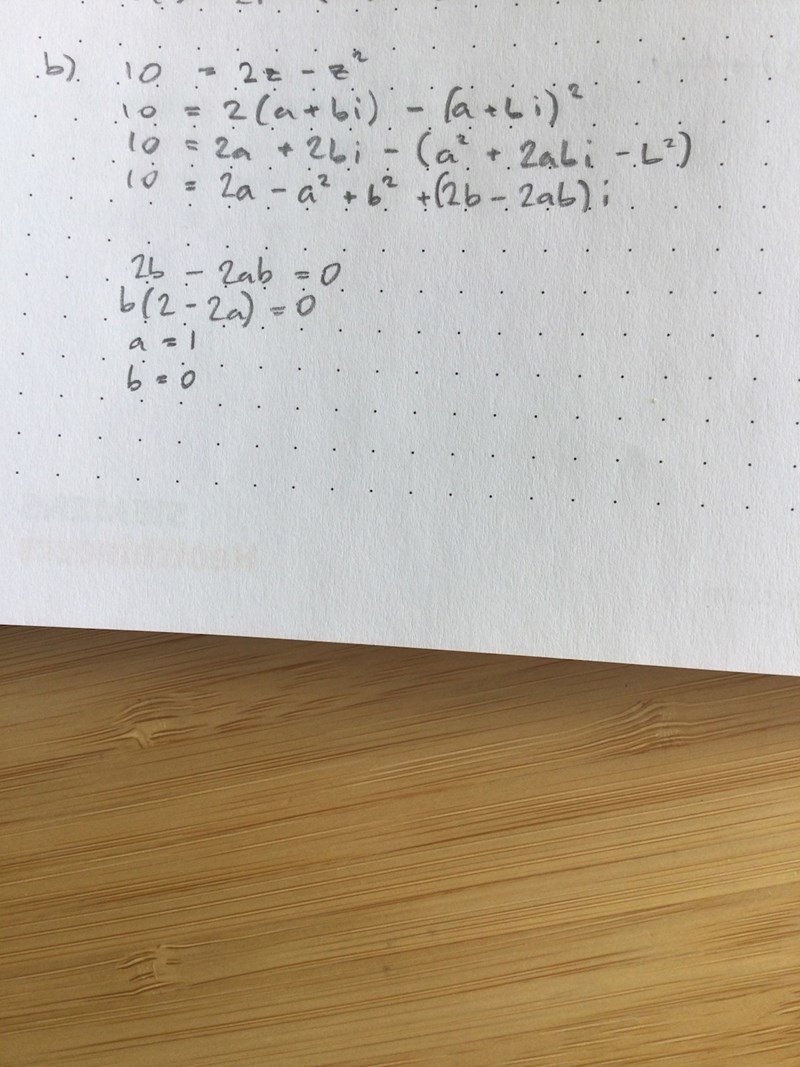 b) 10 = 2z - z²
10 = 2(a + bi) - (a + bi)²
10 = 2a + 2bi - (a² + 2abi - b²)
10 = 2a - a² + b² + (2b - 2ab)i
2b - 2ab = 0
b(2 - 2a) = 0
a = 1
b = 0